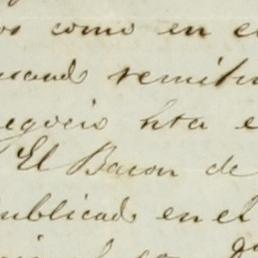 os como en e
usando remitir
egocio hta e
El Baron de
ublicado en el